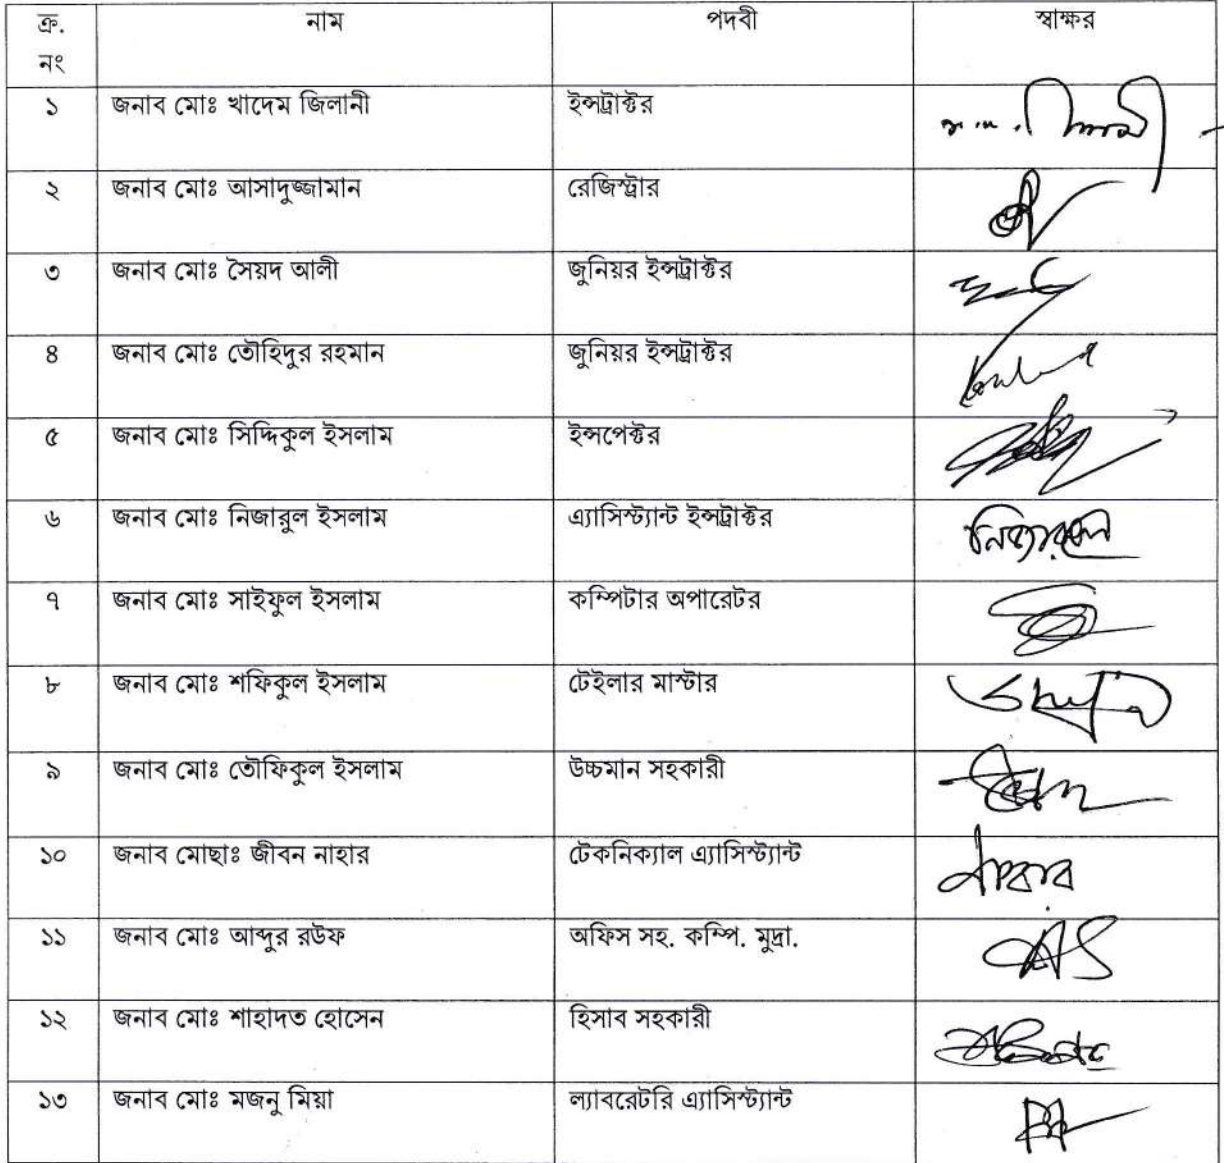 ক্র. নাম পদবী স্বাক্ষর
নং
১ জনাব মোঃ খাদেম জিলানী ইন্সট্রাক্টর
২ জনাব মোঃ আসাদুজ্জামান রেজিস্ট্রার
৩ জনাব মোঃ সৈয়দ আলী জুনিয়র ইন্সট্রাক্টর
৪ জনাব মোঃ তৌহিদুর রহমান জুনিয়র ইন্সট্রাক্টর
৫ জনাব মোঃ সিদ্দিকুল ইসলাম ইন্সপেক্টর
৬ জনাব মোঃ নিজারুল ইসলাম এ্যাসিস্ট্যান্ট ইন্সট্রাক্টর নিজারুল
৭ জনাব মোঃ সাইফুল ইসলাম কম্পিটার অপারেটর
৮ জনাব মোঃ শফিকুল ইসলাম টেইলার মাস্টার
৯ জনাব মোঃ তৌফিকুল ইসলাম উচ্চমান সহকারী
১০ জনাব মোছাঃ জীবন নাহার টেকনিক্যাল এ্যাসিস্ট্যান্ট
১১ জনাব মোঃ আব্দুর রউফ অফিস সহ. কম্পি. মুদ্রা.
১২ জনাব মোঃ শাহাদত হোসেন হিসাব সহকারী
১৩ জনাব মোঃ মজনু মিয়া ল্যাবরেটরি এ্যাসিস্ট্যান্ট